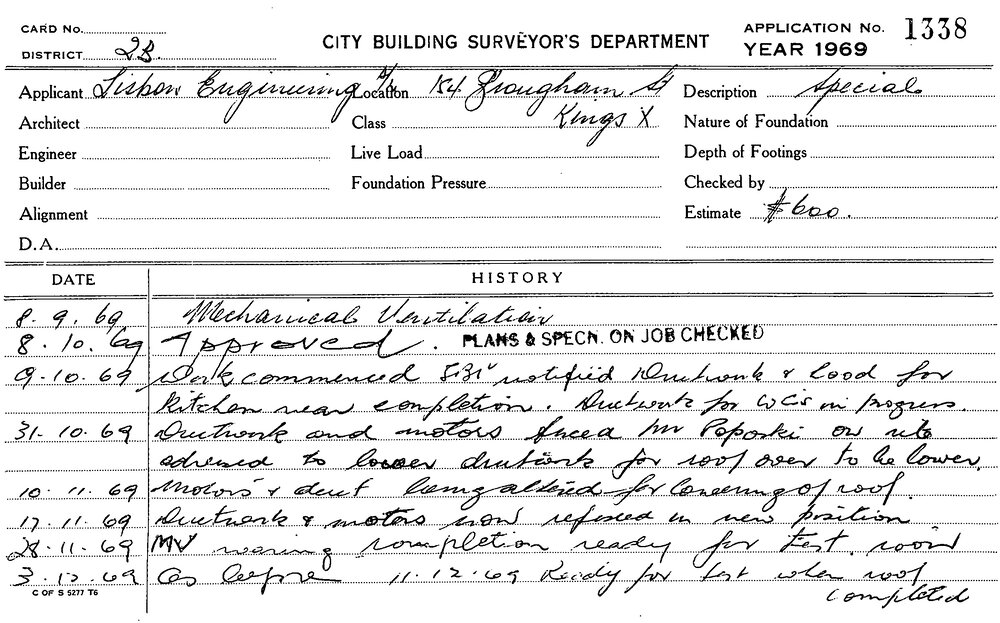 CARD No.
DISTRICT 2B
CITY BUILDING SURVEYOR'S DEPARTMENT
APPLICATION No. 1338
YEAR 1969
Applicant Lisbon Engineering P/L Location 154 Brougham St Description Special
Architect Class Kings X Nature of Foundation
Engineer Live Load Depth of Footings
Builder Foundation Pressure Checked by
Alignment Estimate $600.
D.A.
DATE HISTORY
8.9.69 Mechanical Ventilation
8.10.69 Approved. PLANS & SPECN. ON JOB CHECKED
9.10.69 Work commenced notified Ductwork & hood for
Kitchen near completion. Ductwork for WC's in progress.
31.10.69 Ductwork and motors fixed Mr Poposki on site
advised to lower ductwork for roof over to be lower.
10.11.69 Motors & duct being altered for lowering of roof.
17.11.69 Ductwork & motors now refixed in new position
28.11.69 MV nearing completion ready for test soon
3.12.69 As before 11.12.69 Ready for test when roof
completed
C OF S 5277 T6